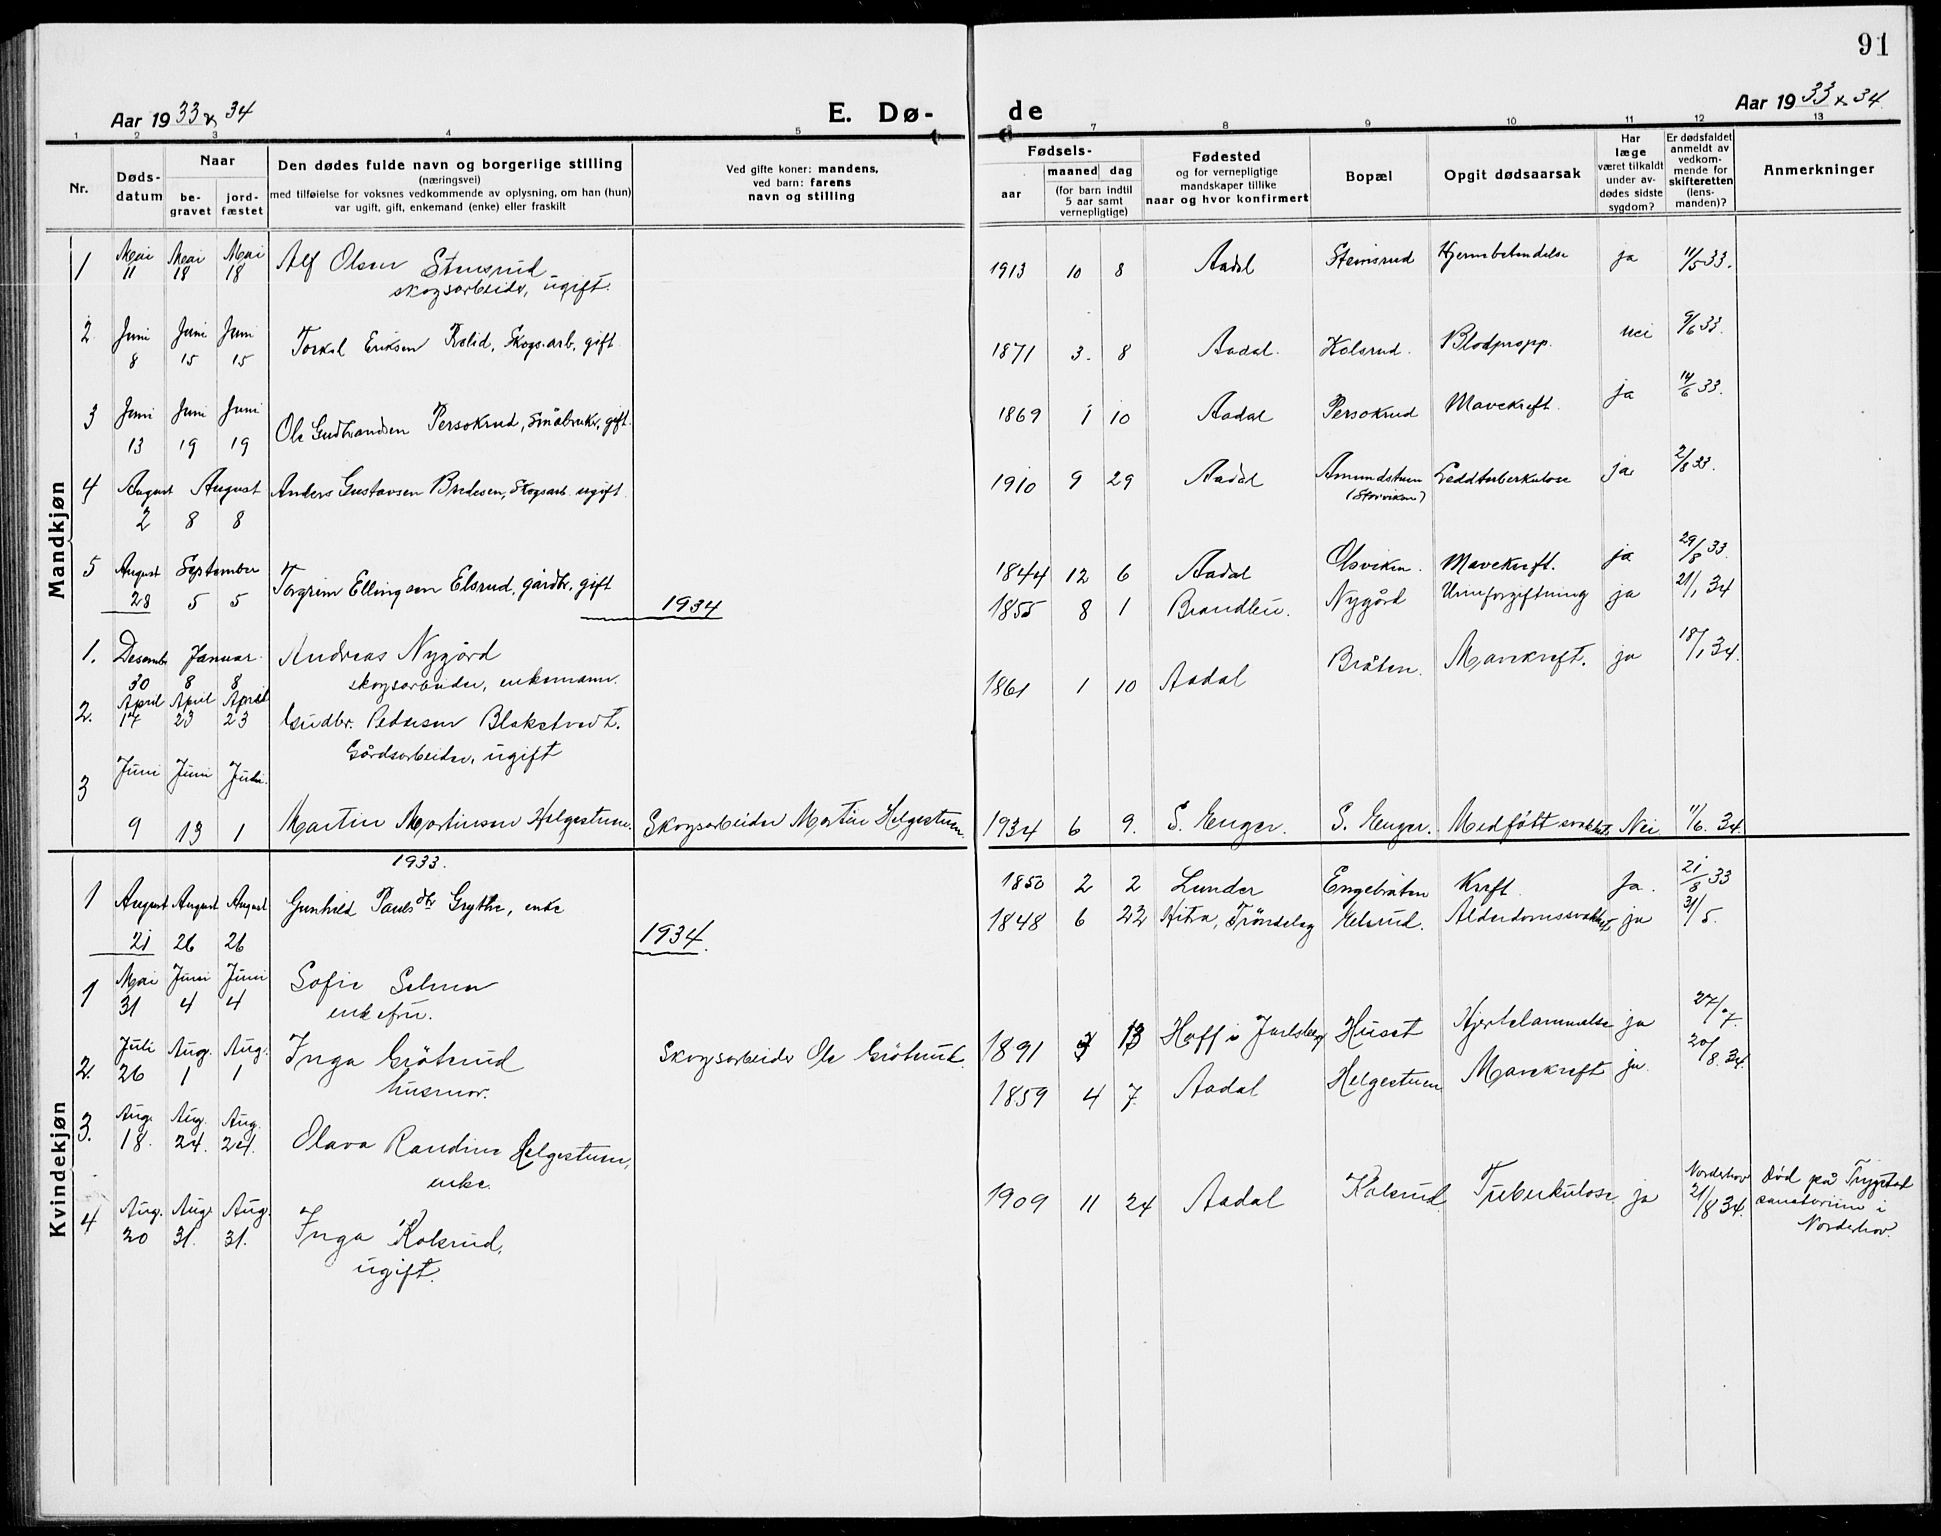 91
Aar 1933 & 34
E. Dø-
de
Aar 1933 & 34
1 2 3 4 5
6 7 8 9 10 11 12 13
Nr.
Døds-
datum
Naar
be-
gravet
jord-
fæstet
Den dødes fulde navn og borgerlige stilling
(næringsvei)
med tilføielse for voksnes vedkommende av oplysning, om han (hun)
var ugift, gift, enkemand (enke) eller fraskilt
Ved gifte koner: mandens,
ved barn: farens
navn og stilling
Fødsels-
aar
maaned dag
(for barn indtil
5 aar samt
vernepligtige)
Fødested
og for vernepligtige
mandskaper tillike
naar og hvor konfirmert
Bopæl
Opgit dødsaarsak
Har
læge
været tilkaldt
under av-
dødes sidste
sygdom?
Er dødsfaldet
anmeldt av
vedkom-
mende for
skifteretten
(lens-
manden)?
Anmerkninger
Mandkjøn
1 Mai 11 Mai 18 Mai 18 Alf Olsen Stensrud
skogsarbeider, ugift.
1913 10 8 Aadal Steinsrud Hjernebetendelse ja 11/5 33.
2 Juni 8 Juni 15 Juni 15 Torkel Eriksen Rolid, Skogs.arb, gift
1871 3. 8 Aadal. Kolsrud. Blodpropp. nei 9/6 33.
3 Juni 13 Juni 19 Juni 19 Ole Gudbrandsen Persokrud, Småbruker, gift.
1869 1 10 Aadal Persokrud Mavekreft. ja 14/6 33.
4 August 2 August 8 8 Anders Gustavsen Bredesen, Skogsarb. ugift.
1910 9 29 Aadal Amundstuen
(Storviken) Leddtuberkulose ja 2/8 33.
5 August 28 September 5 5 Torgrim Ellingsen Elsrud, gårdbr, gift
1844 12 6 Aadal Olsviken. Mavekreft. ja 29/8 33.
1934
1. Desember 30 Januar 8 8 Andreas Nygård
skogsarbeider, enkemann.
1855 8 1 Brandbu. Nygård Urinforgiftning ja 21/1 34
2. April 17 April 23 April 23 Gudbr. Pedersen Blakstvedt.
Gårdsarbeider, ugift
1861 1 10 Aadal Bråten. Mavekreft. ja 18/1 34.
3 Juni 9 Juni 13 Juli 1 Martin Martinsen Helgestuen. Skogsarbeider Martin Helgestuen
1934 6 9. S. Enger. S. Enger. Medfödt svakhet. Nei 11/6. 34.
Kvindekjøn
1933.
1 August 21 August 26 August 26 Gunhild Paulsdtr Grythe, enke
1850 2 2 Lunder Engebråten Kreft. Ja. 21/8 33
1934.
1 Mai 31 Juni 4 Juni 4 Sofie Selmer
enkefru.
1848 6 22 Hitra, Tröndelag Elsrud. Alderdomssvakhet ja 31/5.
2. Juli 26 Aug. 1 Aug. 1 Inga Grötrud
husmor. Skogsarbeider Ole Grötrud.
1891 3 13 Hoff i Jarlsberg Huset Hjertelammelse ja 27/7.
3. Aug. 18. Aug. 24. Aug. 24. Olava Randine Helgestuen,
enke.
1859 4 7. Aadal Helgestuen Mavekreft ja. 20/8. 34.
4 Aug. 20 Aug. 31. Aug. 31. Inga Kolsrud,
ugift.
1909 11 24 Aadal Kolsrud Tuberkulose ja Norderhov
21/8 34. död på Trygstad
sanatorium i
Norderhov.